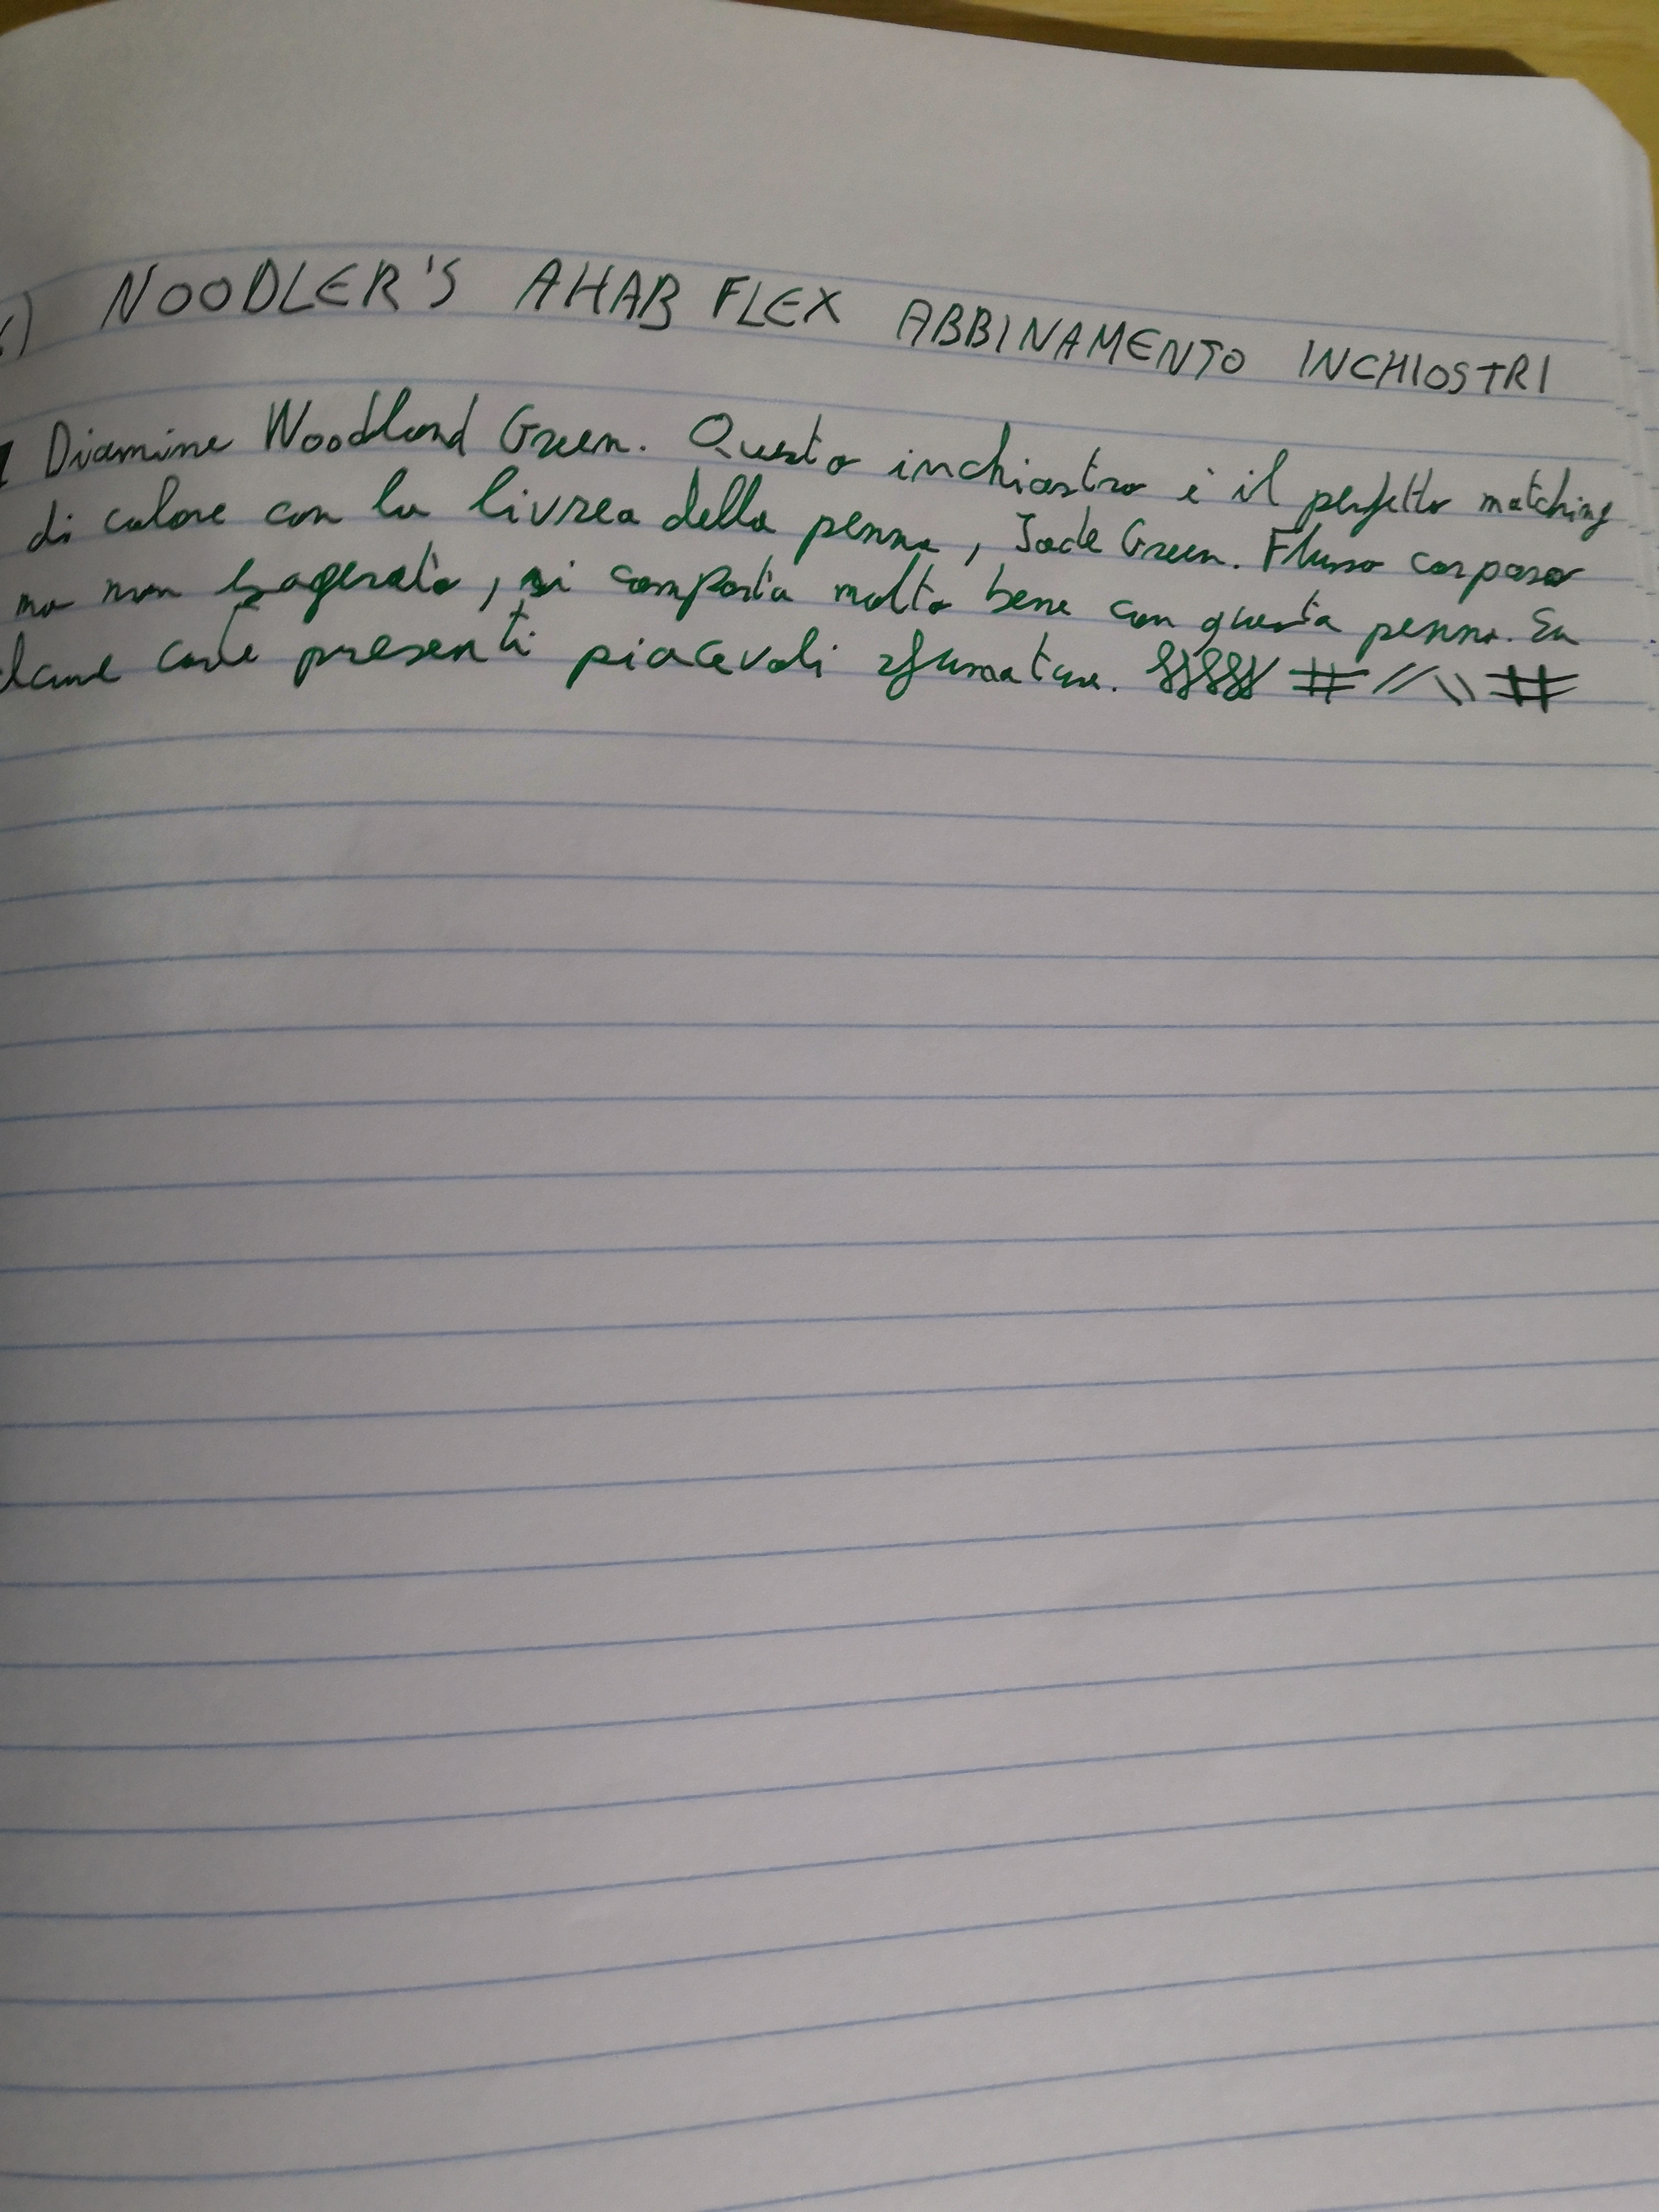 ) NOODLER'S AHAB FLEX ABBINAMENTO INCHIOSTRI
Diamine Woodland Green. Questo inchiostro è il perfetto matching
di colore con la livrea della penna, Jade Green. Flusso corposo
ma non esagerato, si comporta molto bene con questa penna. Su
lcune carte presenti piacevoli sfumature. # // \\ #